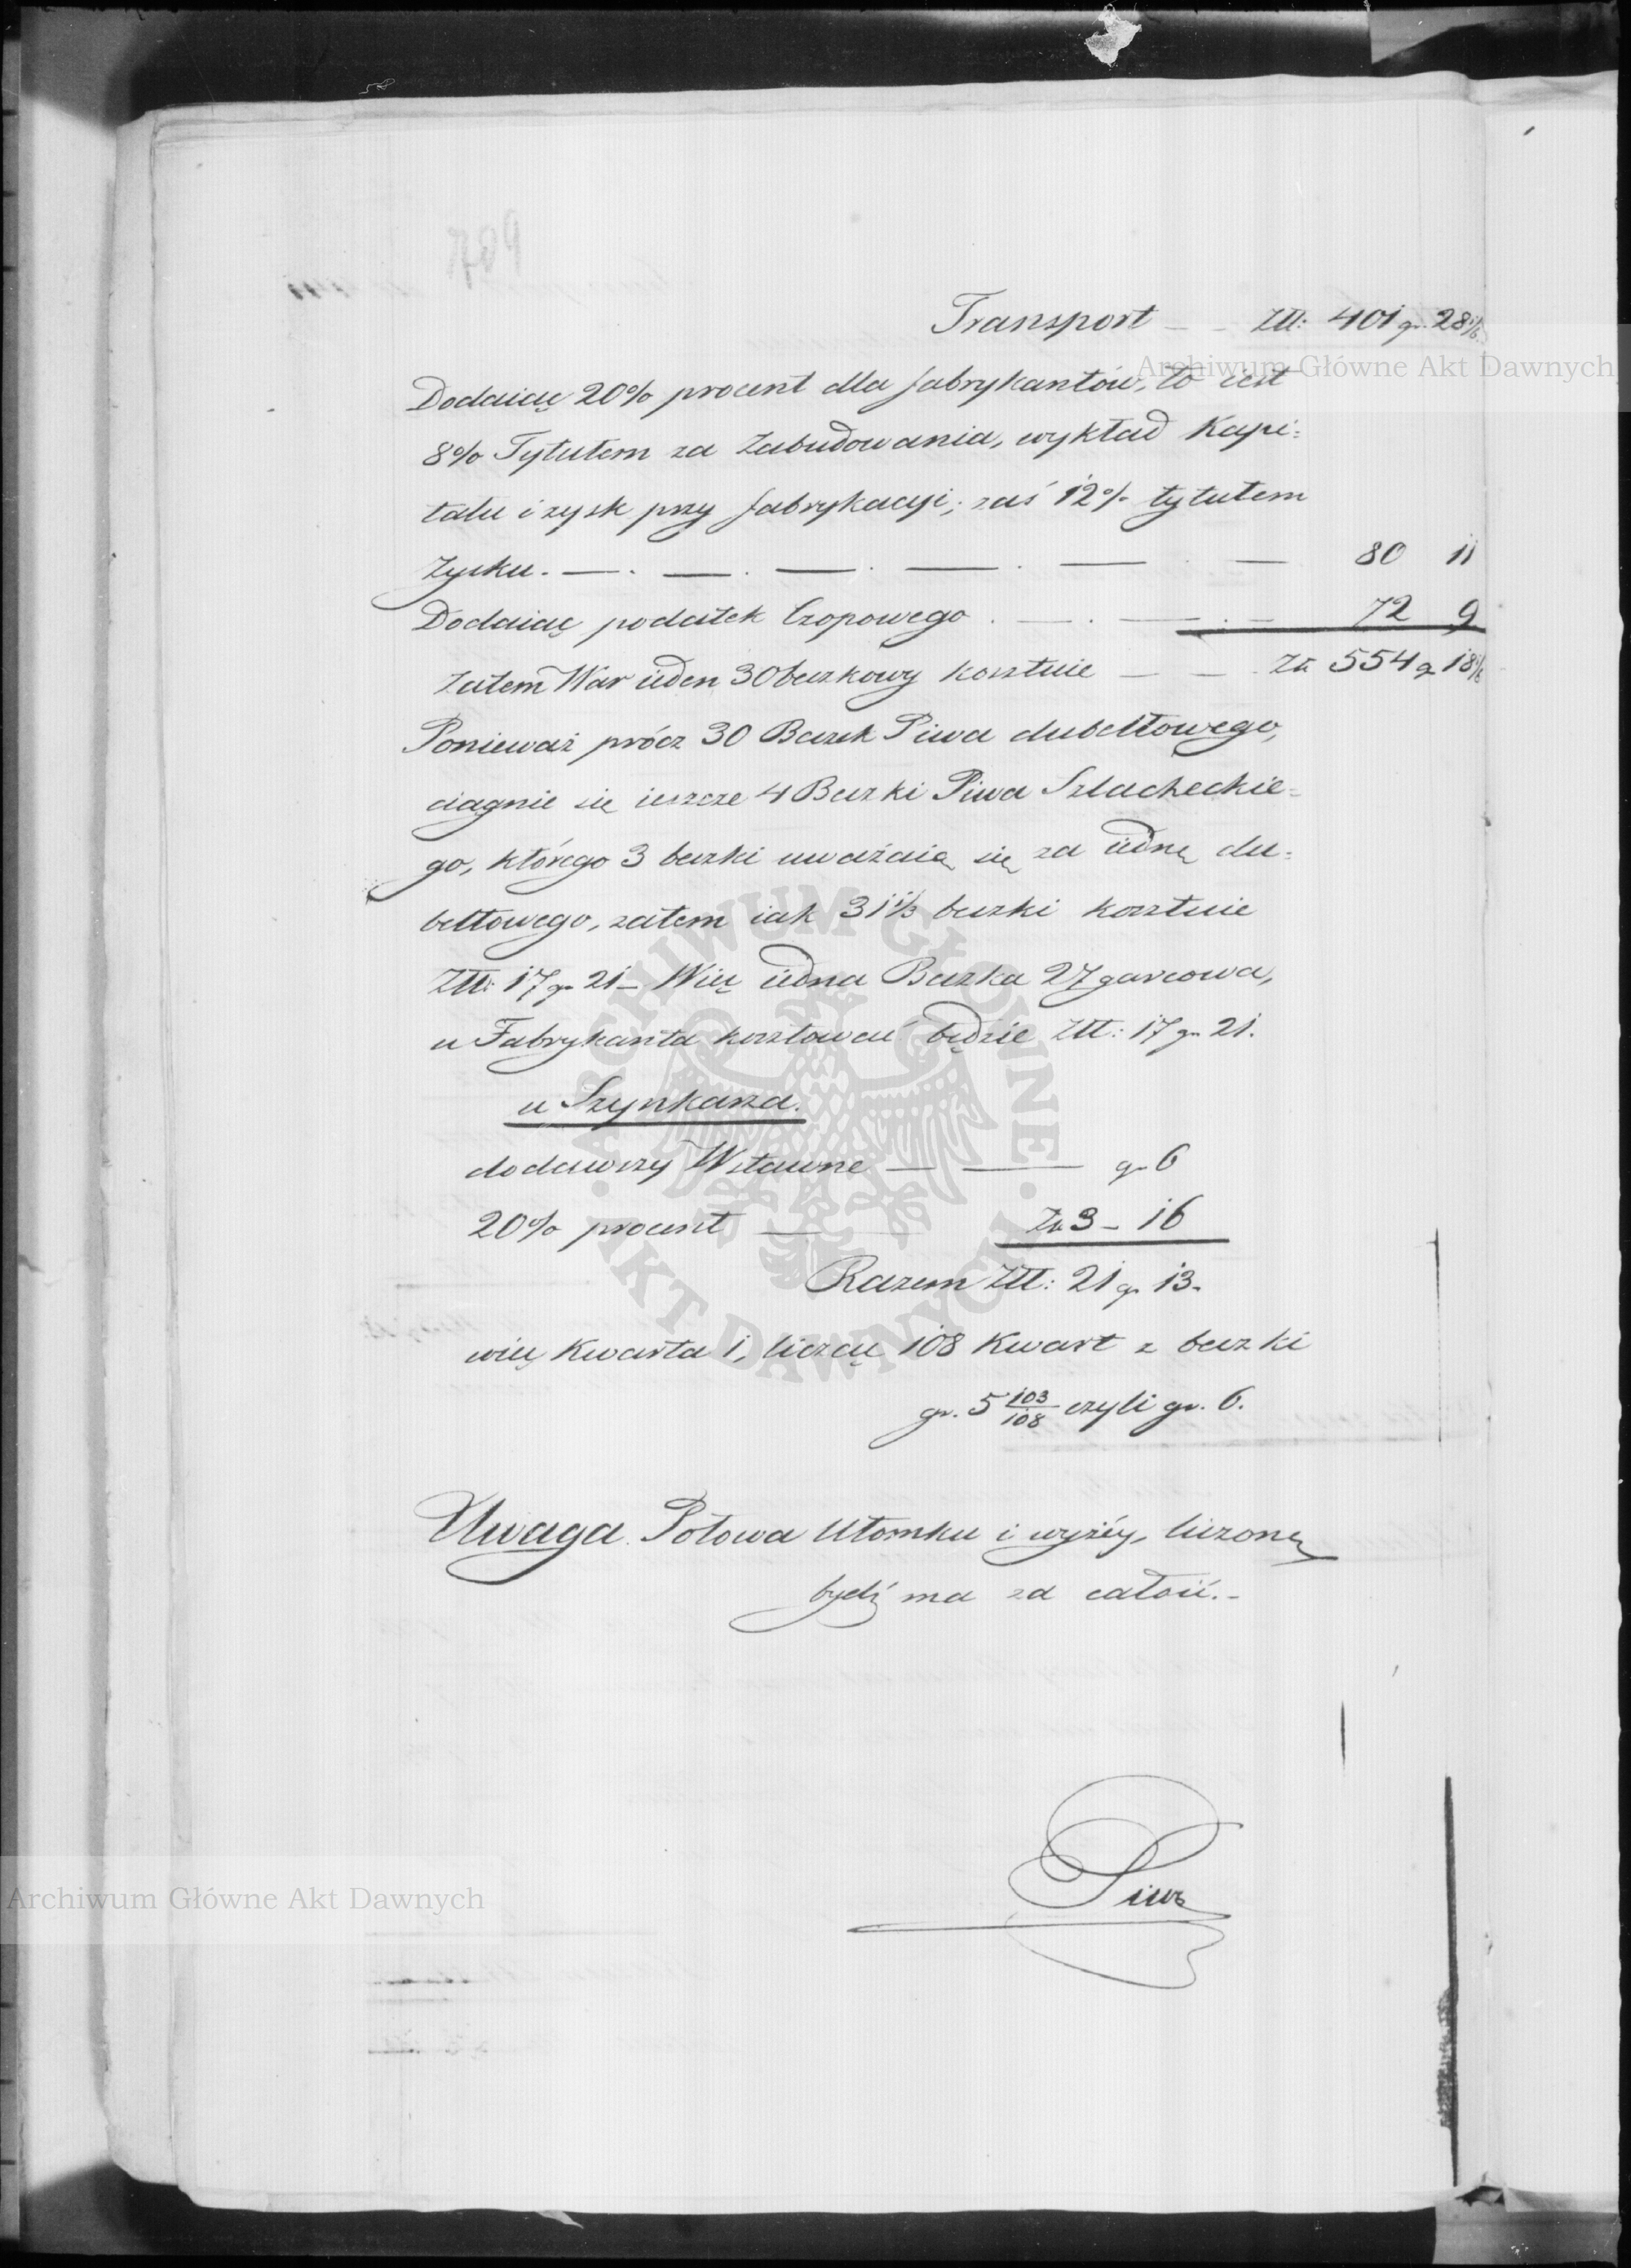 Transport — — Złł: 401 gr. 28 1/6
Dodaiąc 20% procent dla fabrykantów, to iest
8% Tytułem za Zabudowania, wykład Kapi=
tału i zysk przy fabrykacyi; zaś 12% tytułem
Zysku. — . — . — . — . — . — 80 11
Dodaiąc podatek Czopowego . — . — . — 72 9
Zatem War ieden 30 beczkowy kosztuie — — Zł 554 gr 18 1/6
Ponieważ prócz 30 Beczek Piwa dubeltowego,
ciągnie się ieszcze 4 Beczki Piwa Szlacheckie=
go, którego 3 beczki uważaią się za iedną du=
beltowego, zatem iak 31 1/3 beczki kosztuie
Złł: 17 gr 21 — Więc iedna Beczka 27 garcowa,
u Fabrykanta kosztować będzie Złł: 17 gr 21.
u Szynkarza.
dodawszy Wstawne — — gr 6
20% procent — Zł 3 — 16
Razem Złł: 21 gr 13.
więc Kwarta 1, licząc 108 Kwart z beczki
gr. 5 103/108 czyli gr. 6.
Uwaga. Połowa Ułomku i wyżéy, liczoną
bydź ma za całość.—
Archiwum Główne Akt Dawnych
Archiwum Główne Akt Dawnych
ARCHIWUM GŁÓWNE
AKT DAWNYCH